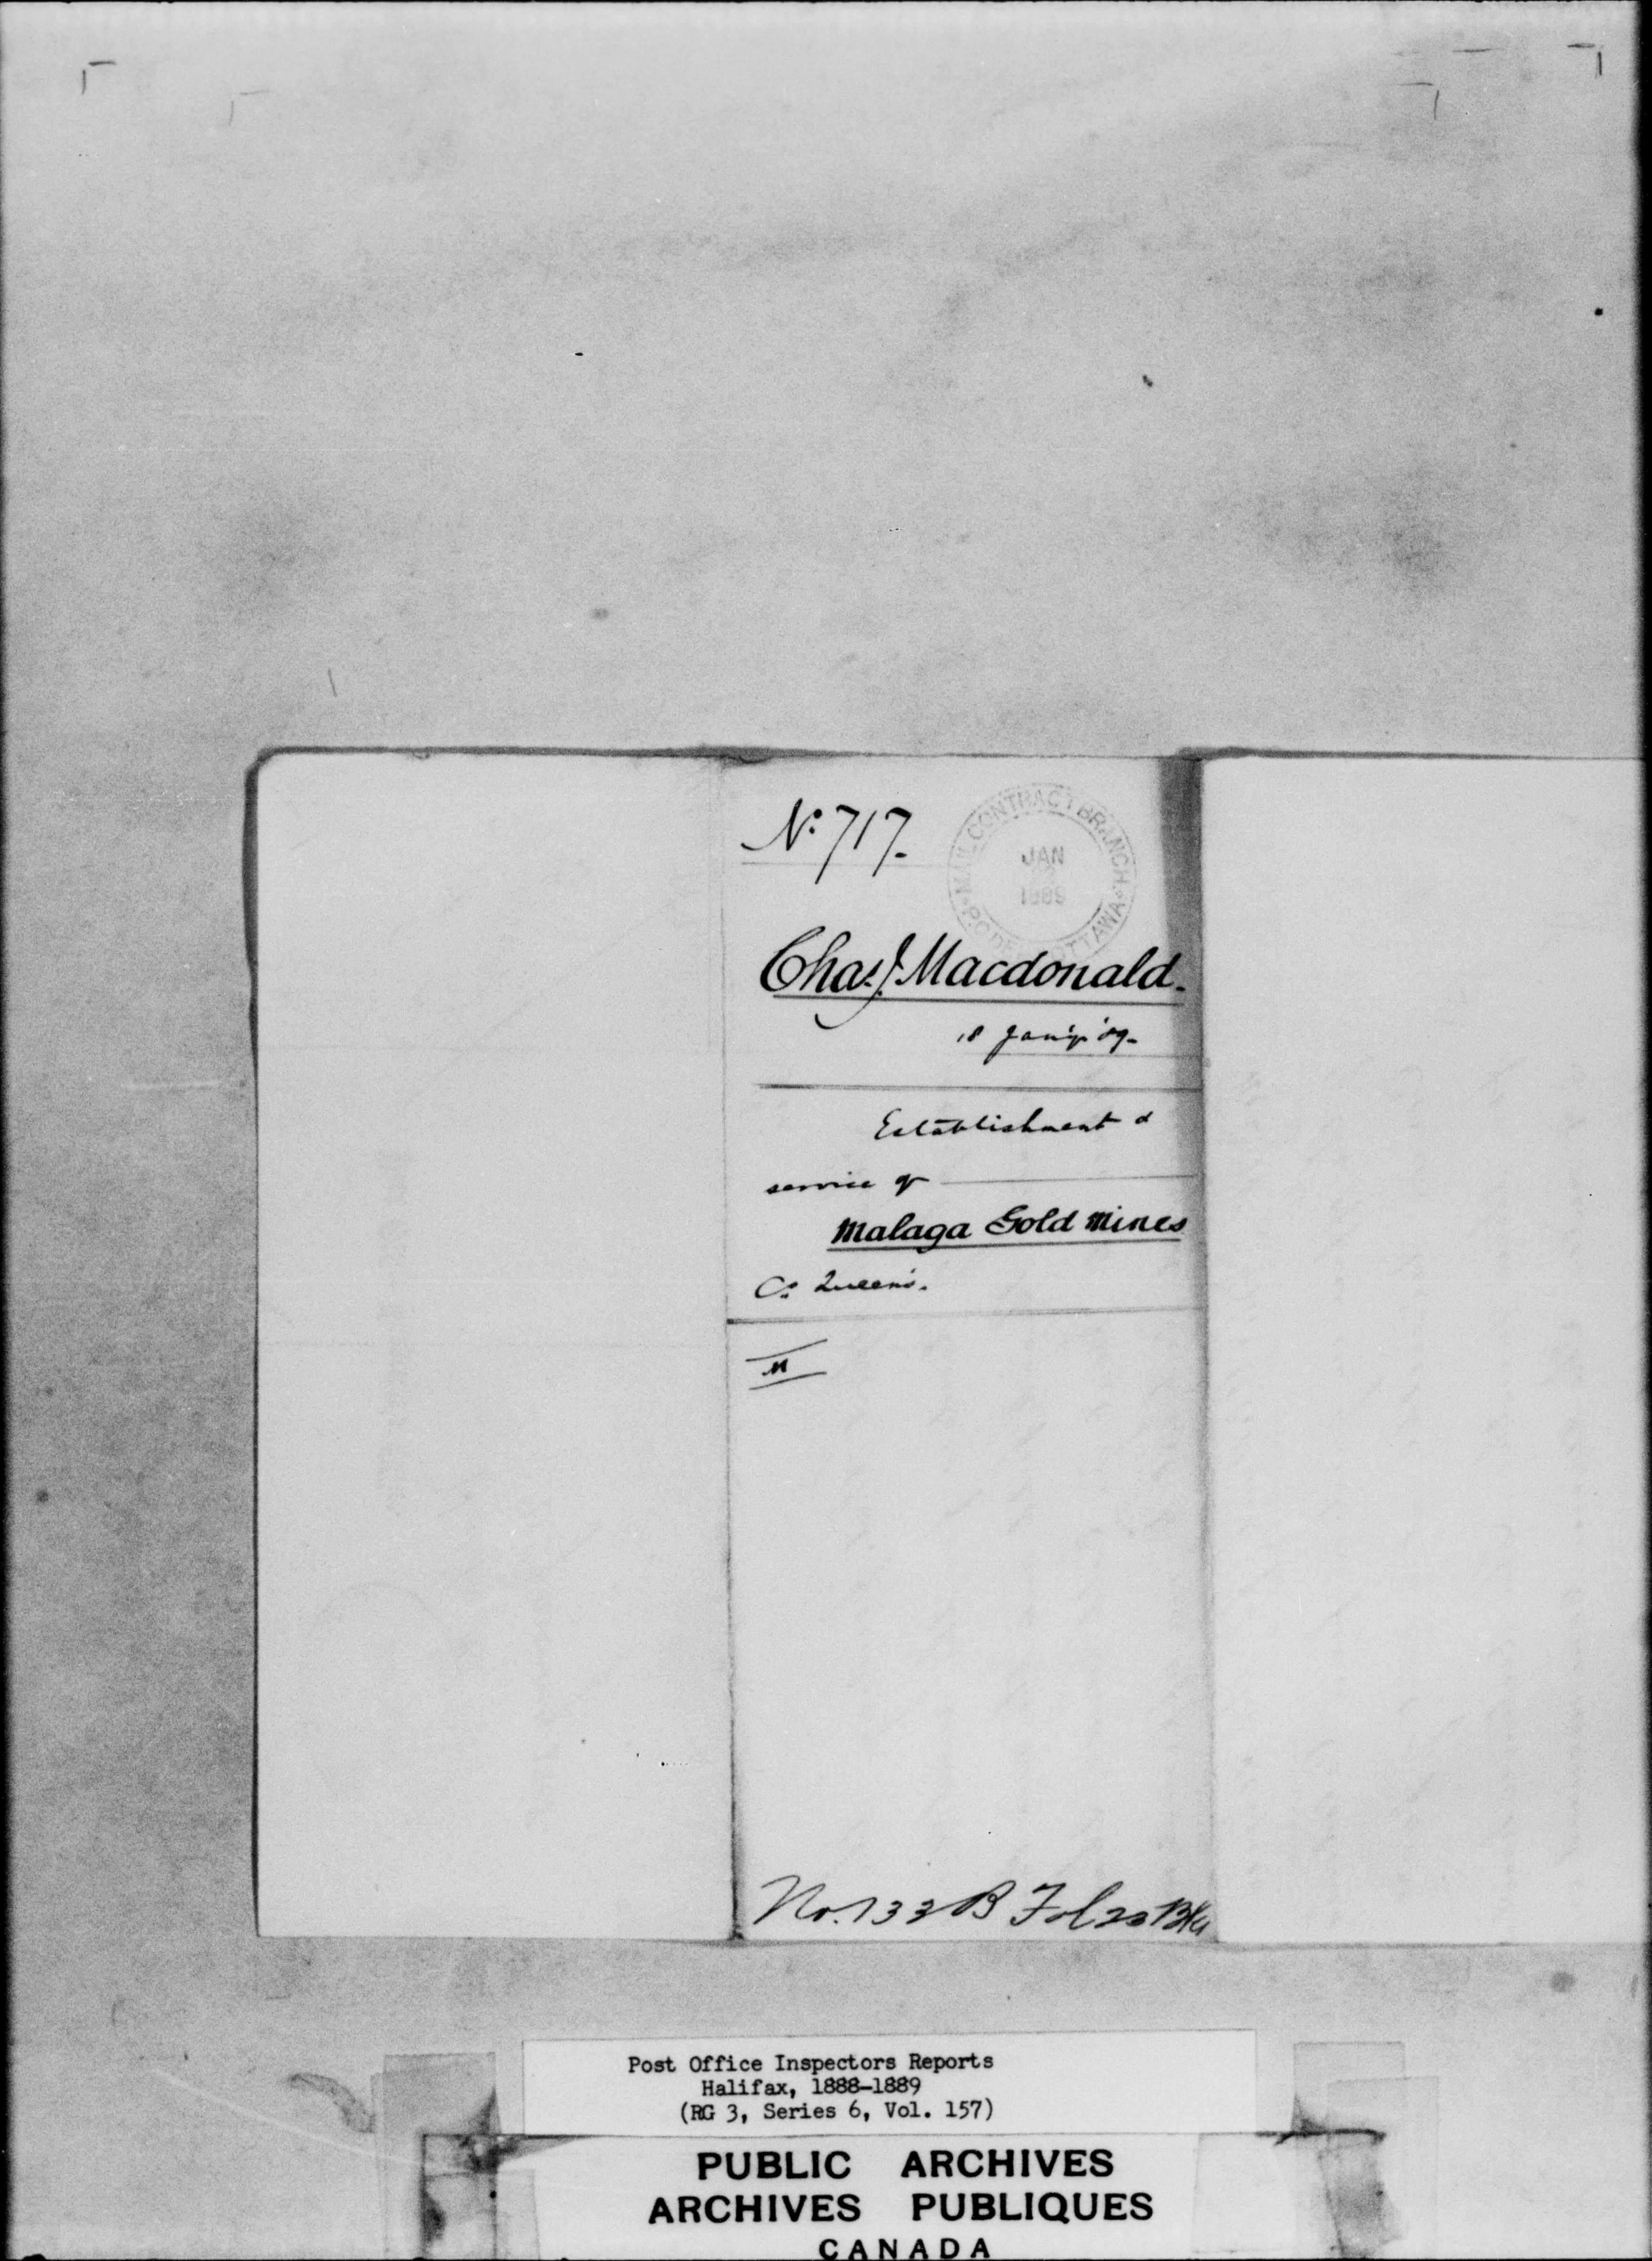 No. 717.
MAIL CONTRACT BRANCH
JAN
1889
P.O. DEPT OTTAWA
Chas. J. Macdonald.
18 Jan'y '89.
Establishment &
service of
Malaga Gold Mines
Co. Queen's.
M
No. 133 B Fol 23
Post Office Inspectors Reports
Halifax, 1888-1889
(RG 3, Series 6, Vol. 157)
PUBLIC ARCHIVES
ARCHIVES PUBLIQUES
CANADA